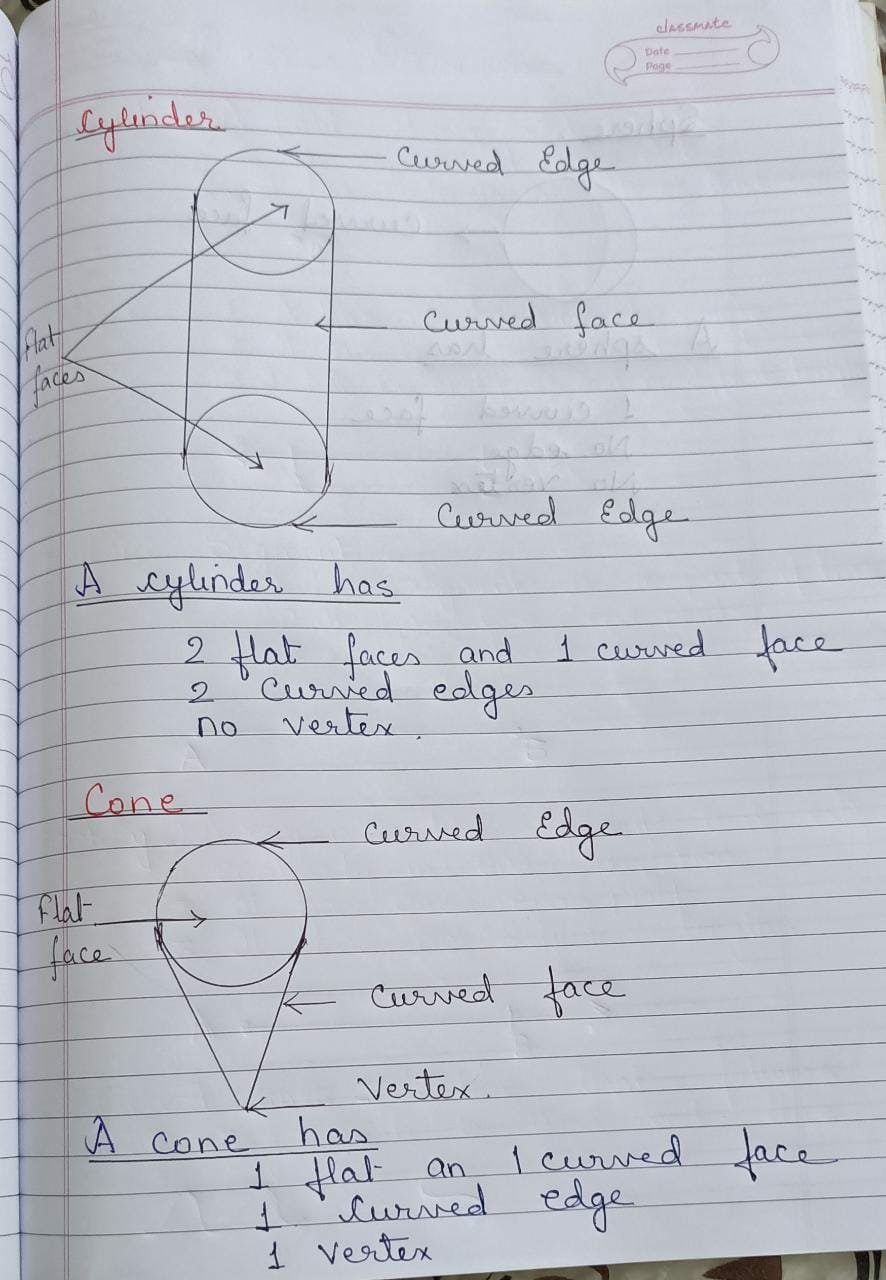 classmate
Date
Page
Cylinder
Curved Edge
Curved face
flat
faces
Curved Edge
A cylinder has
2 flat faces and 1 curved face
2 Curved edges
no vertex.
Cone
Curved Edge
Flat
face
Curved face
Vertex.
A cone has
1 flat an 1 curved face
1 Curved edge
1 vertex